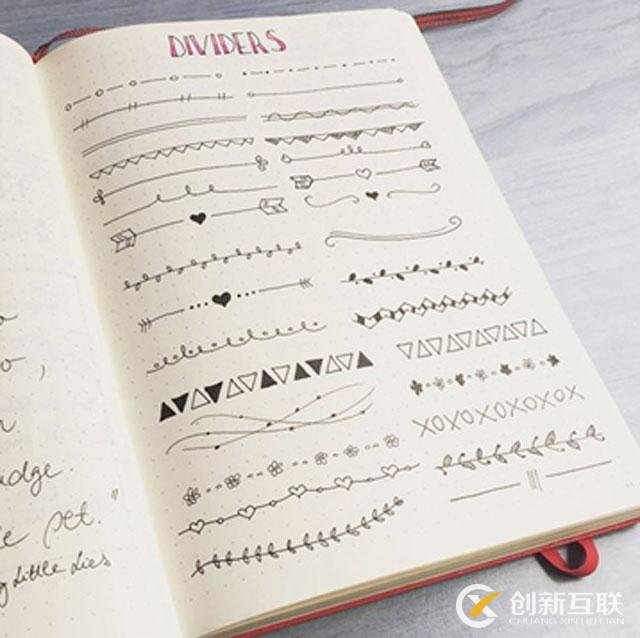 DIVIDERS
XOXOXOXOXOX
udge.
pet."
little dies
创新互联
CHUANG XIN HU LIAN